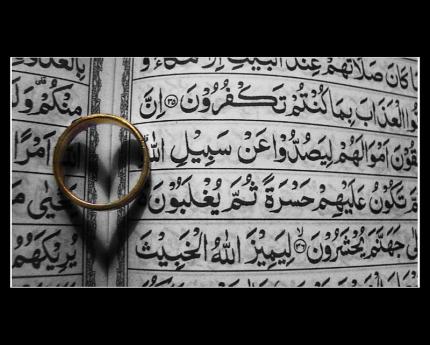 كَانَ صَلَاتُهُمْ عِنْدَ الْبَيْتِ اِلَّا مُكَآءً وَّ
الْعَذَابَ بِمَا كُنْتُمْ تَكْفُرُوْنَ ۝٣٥ اِنَّ
اَمْوَالَهُمْ لِيَصُدُّوْا عَنْ سَبِيْلِ اللّٰهِ
تَكُوْنُ عَلَيْهِمْ حَسْرَةً ثُمَّ يُغْلَبُوْنَ
جَهَنَّمَ يُحْشَرُوْنَ ۝٣٦ لِيَمِيْزَ اللّٰهُ الْخَبِيْثَ
مِنْكُمْ
اللّٰهُ اَمْرًا
يَحْيٰى
يُرِيْكَهُمُ